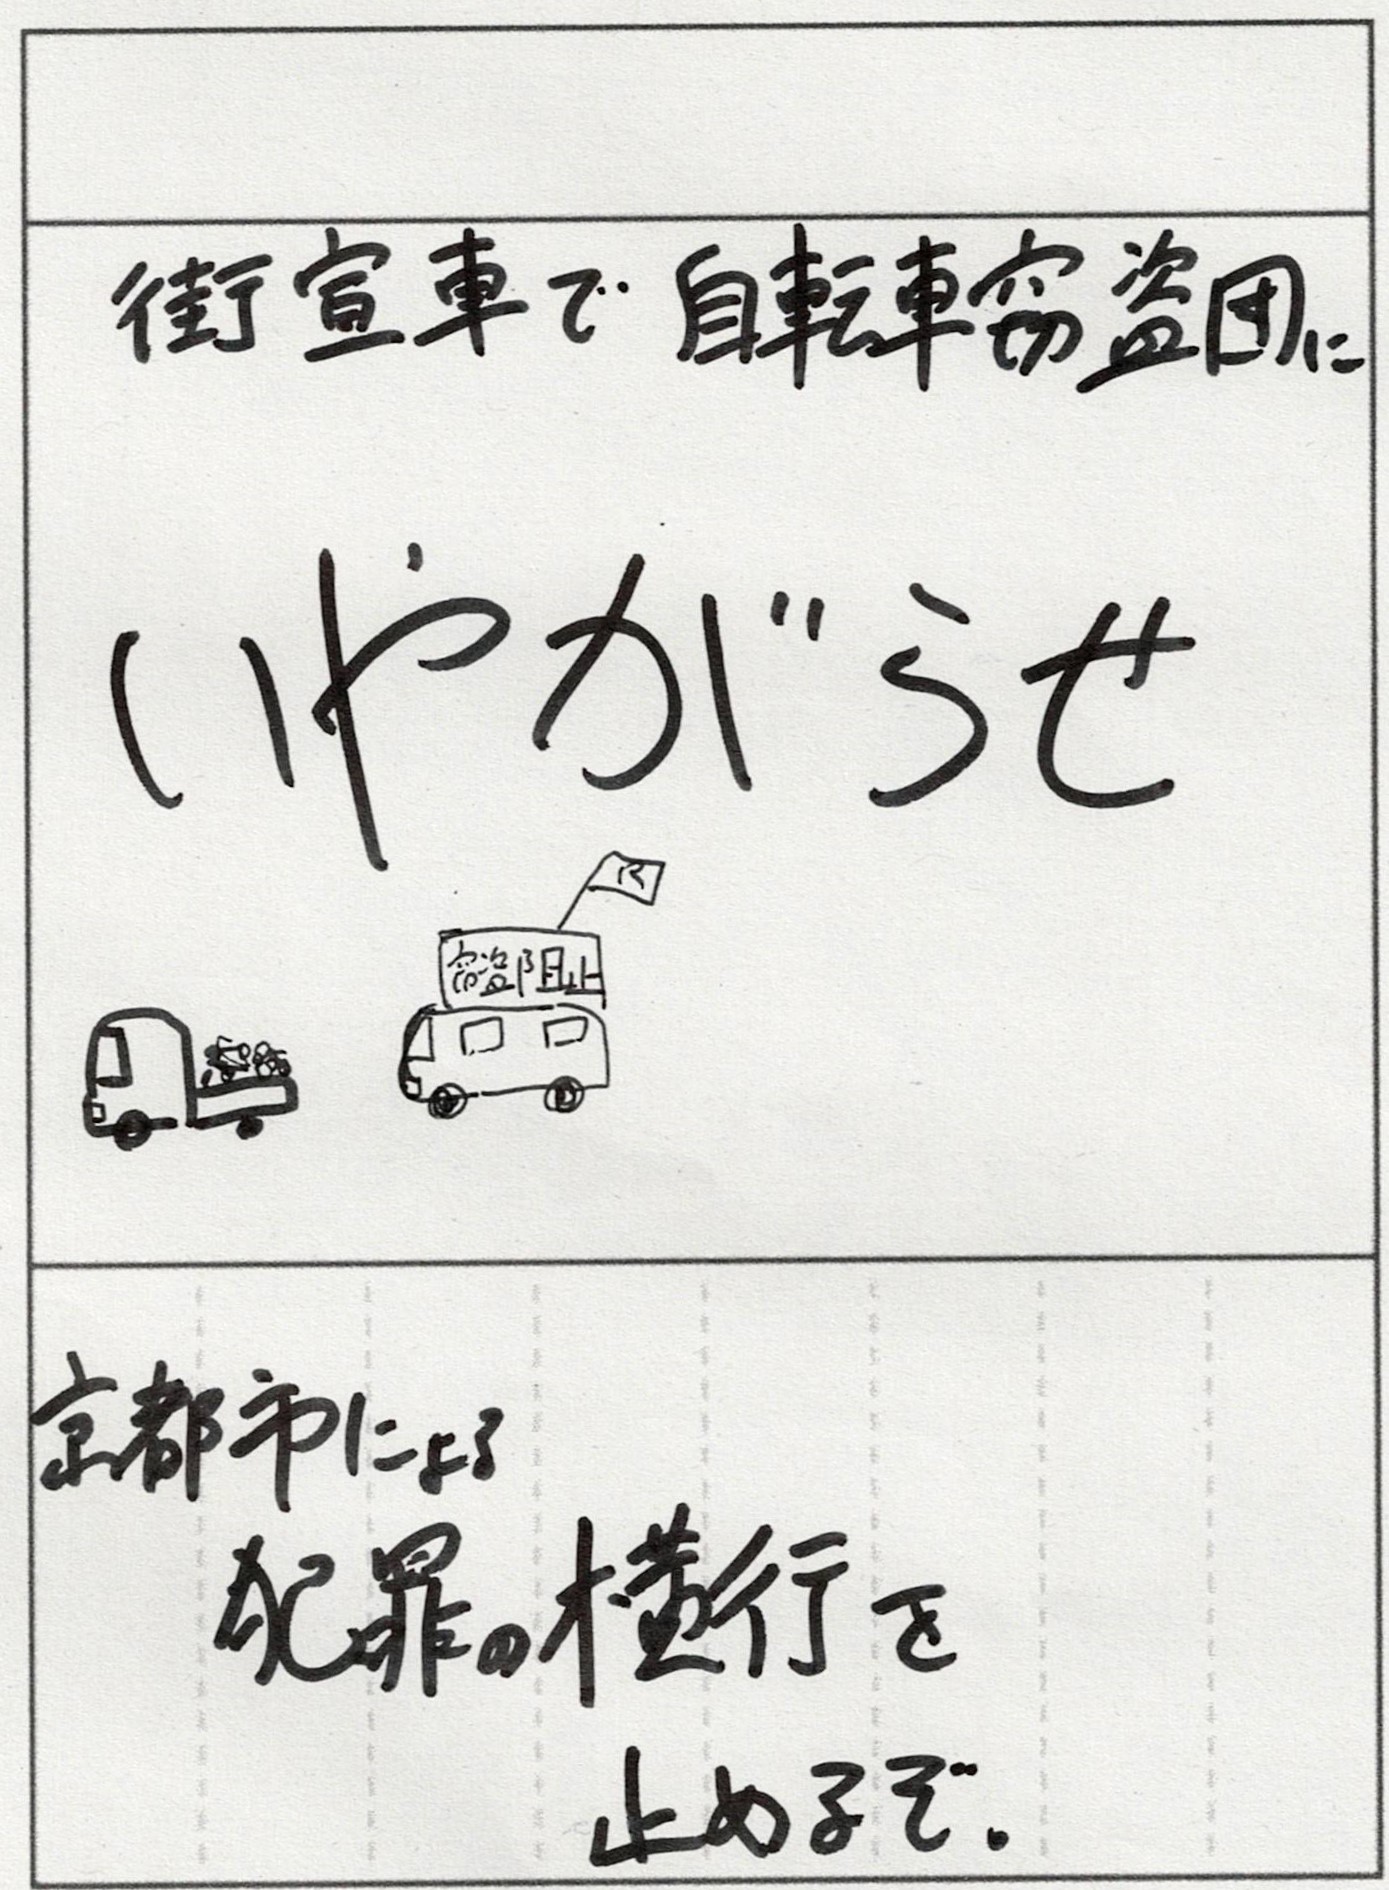 街宣車で自転車窃盗団に
いやがらせ
窃盗阻止
京都市による
犯罪の横行を
止めるぞ.